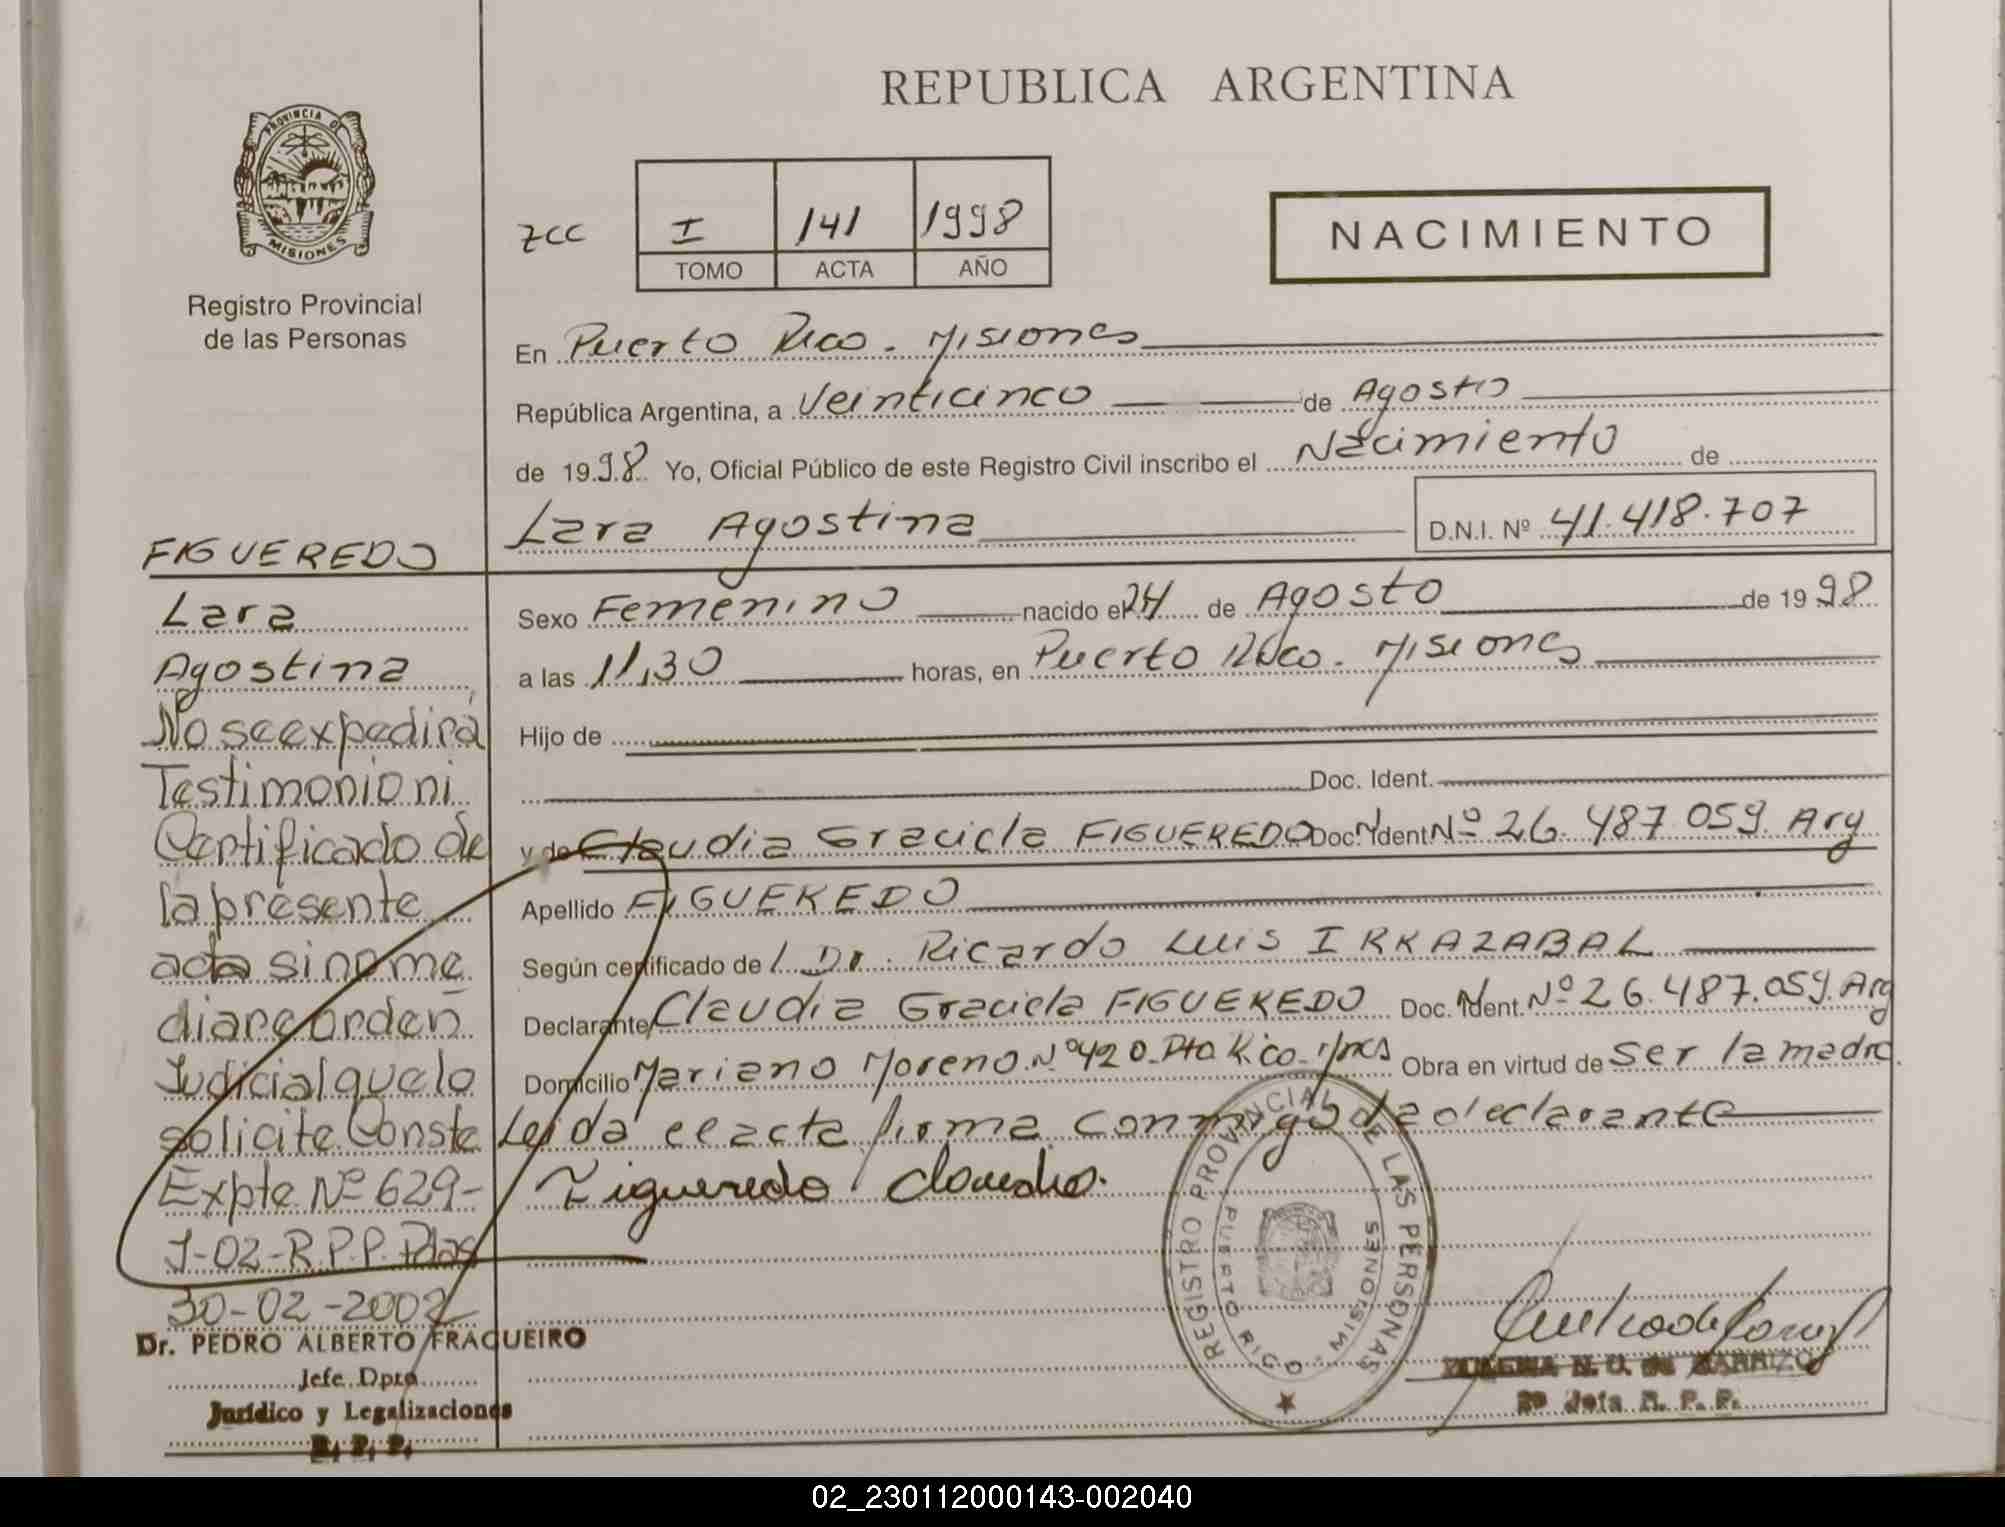 REPUBLICA ARGENTINA
PROVINCIA DE
MISIONES
Registro Provincial
de las Personas
zcc
I 141 1998
TOMO ACTA AÑO
NACIMIENTO
En Puerto Rico - Misiones
República Argentina, a Veinticinco de Agosto
de 1998 Yo, Oficial Público de este Registro Civil inscribo el Nacimiento de
Lara Agostina D.N.I. Nº 41.418.707
Sexo Femenino nacido el 24 de Agosto de 1998
a las 11,30 horas, en Puerto Rico - Misiones
Hijo de
Doc. Ident.
y de Claudia Graciela FIGUEREDO Doc. Ident Nº 26.487.059. Arg
Apellido FIGUEREDO
Según certificado del Dr. Ricardo Luis IRRAZABAL
Declarante Claudia Graciela FIGUEREDO Doc. Ident. Nº 26.487.059. Arg
Domicilio Mariano Moreno Nº 420 - Pto. Rico - Mnes Obra en virtud de Ser la madre
Leida el acta firma conmigo la declarante
Figueredo Claudia.
FIGUEREDO
Lara
Agostina
No se expedirá
Testimonio ni
Certificado de
la presente
acta si no me
diare orden
Judicial que lo
solicite. Conste
Expte Nº 629-
J-02-R.P.P. Pdas
30-02-2002
Dr. PEDRO ALBERTO FRAGUEIRO
Jefe Dpto
Jurídico y Legalizaciones
R. P. P.
REGISTRO PROVINCIAL DE LAS PERSONAS
PUERTO RICO - MISIONES
N. O. de BARRIZO
2º Jefa R. P. P.
02_230112000143-002040